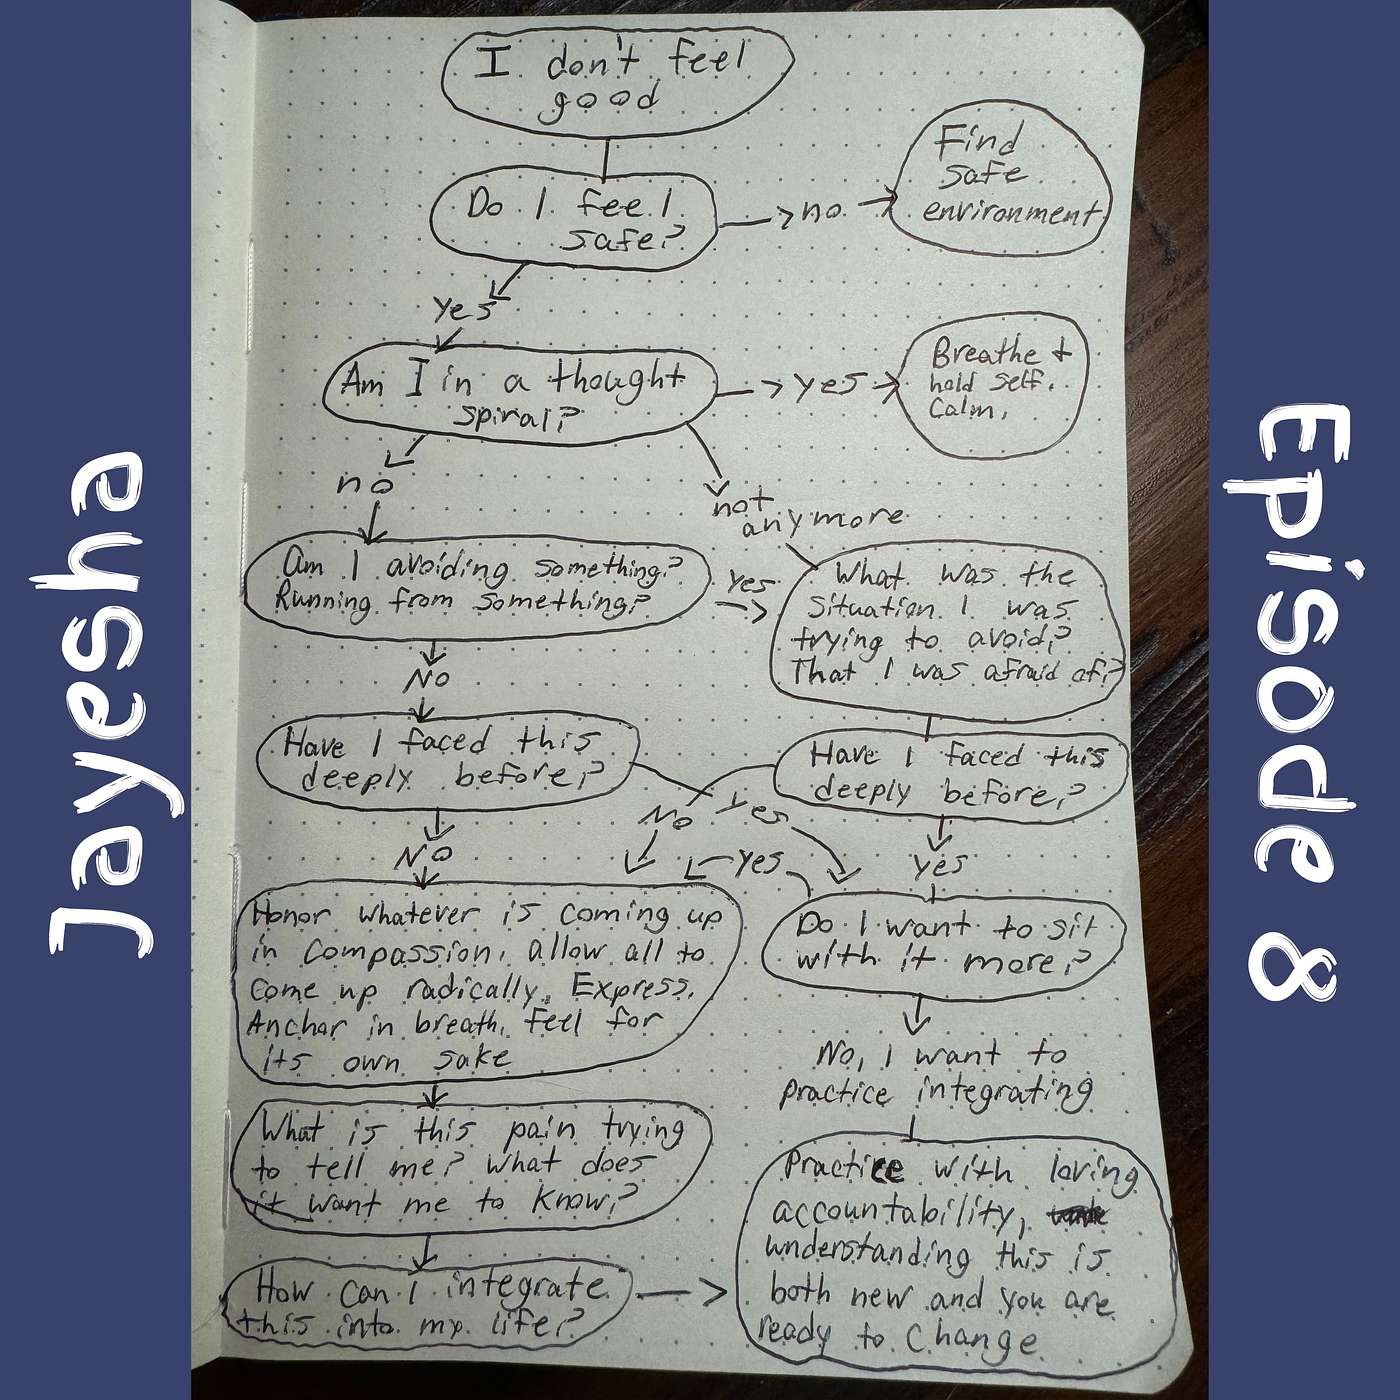 Jayesha
I don't feel
good
Do I feel
safe?
no
Find
safe
environment
yes
Am I in a thought
spiral?
yes
Breathe +
hold self.
Calm.
no
not
anymore
Am I avoiding something?
Running from something?
yes
What was the
situation I was
trying to avoid?
That I was afraid of?
No
Have I faced this
deeply before?
Have I faced this
deeply before?
No
yes
No
yes
yes
Honor whatever is coming up
in compassion, allow all to
come up radically. Express.
Anchor in breath, feel for
its own sake
Do I want to sit
with it more?
No, I want to
practice integrating
What is this pain trying
to tell me? What does
it want me to know?
Practice with loving
accountability,
understanding this is
both new and you are
ready to change
How can I integrate
this into my life?
Episode 8